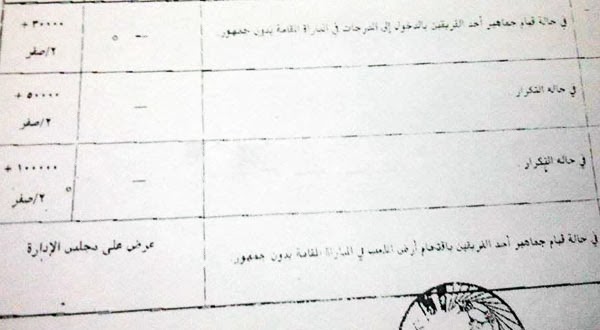 في حالة قيام جماهير أحد الفريقين بالدخول إلى المدرجات في المباراة المقامة بدون جمهور. — ٣٠٠٠٠ +
٢/صفر
في حاله التكرار — ٥٠٠٠٠ +
٢/صفر
في حاله التكرار — ١٠٠٠٠٠ +
٢/صفر
في حالة قيام جماهير أحد الفريقين باقتحام أرض الملعب في المباراة المقامة بدون جمهور. عرض على مجلس الإدارة